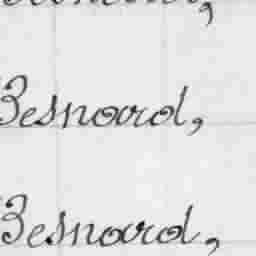 Besnard,
Besnard,